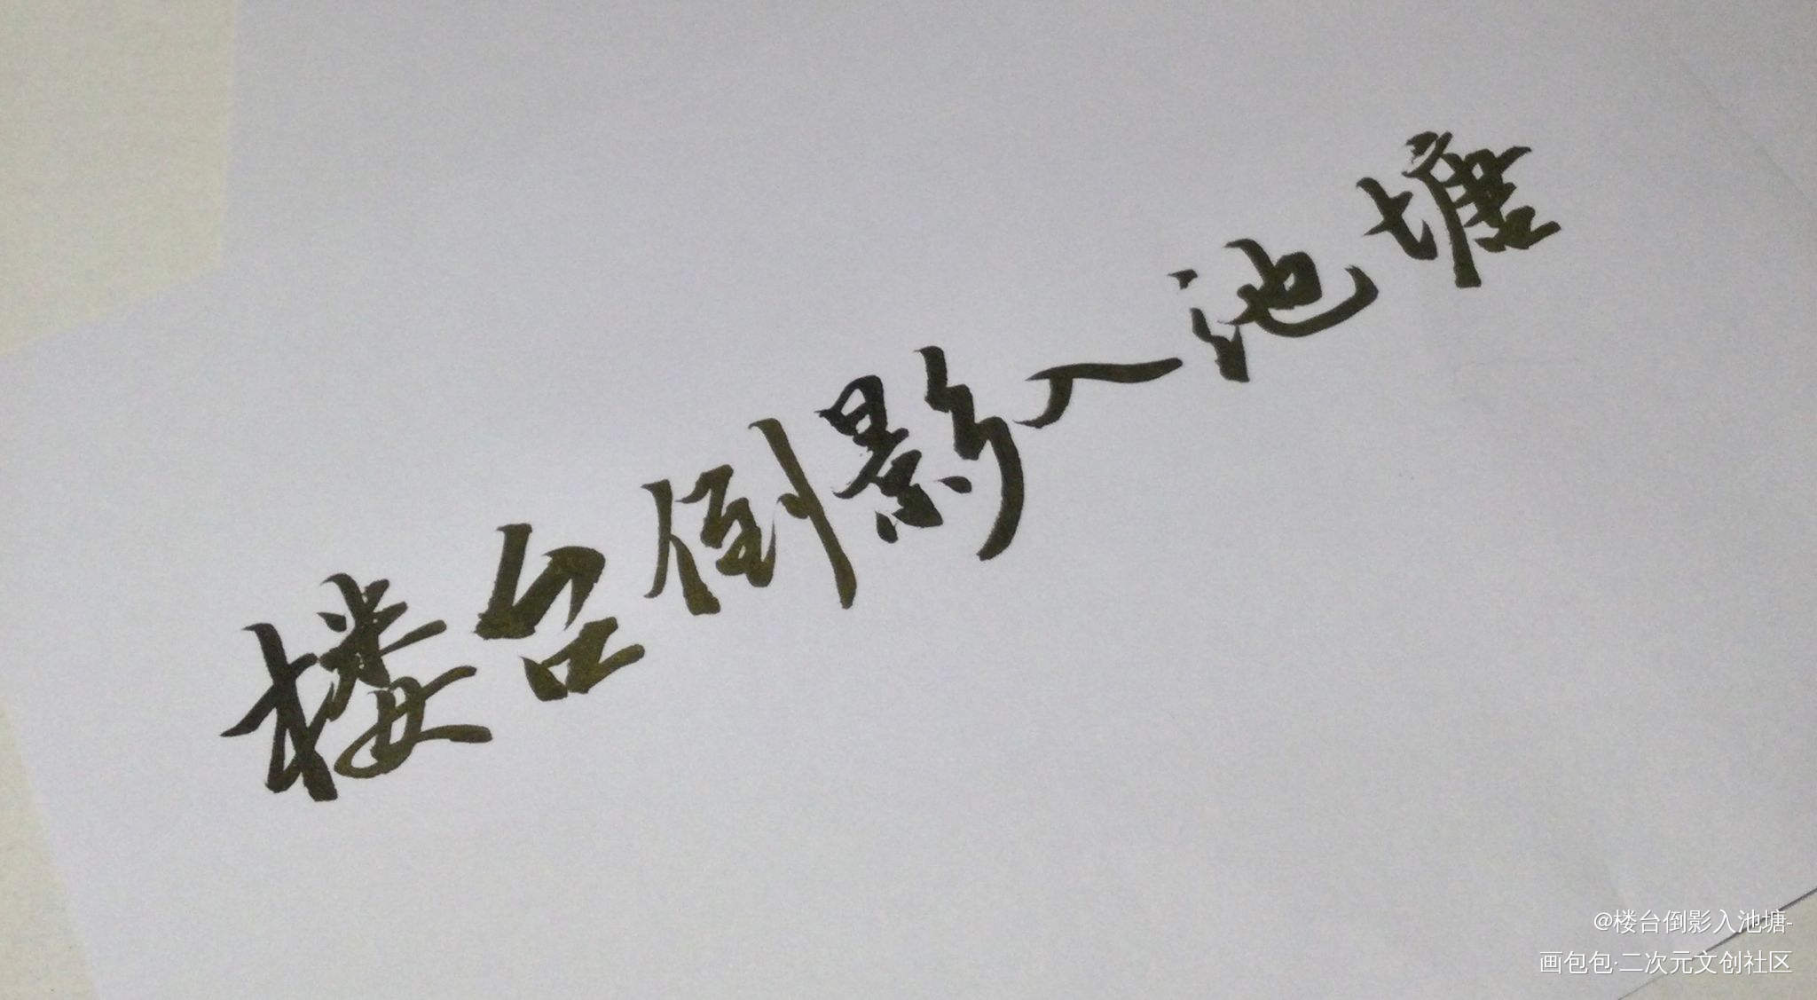 楼台倒影入池塘
@楼台倒影入池塘-
画包包·二次元文创社区